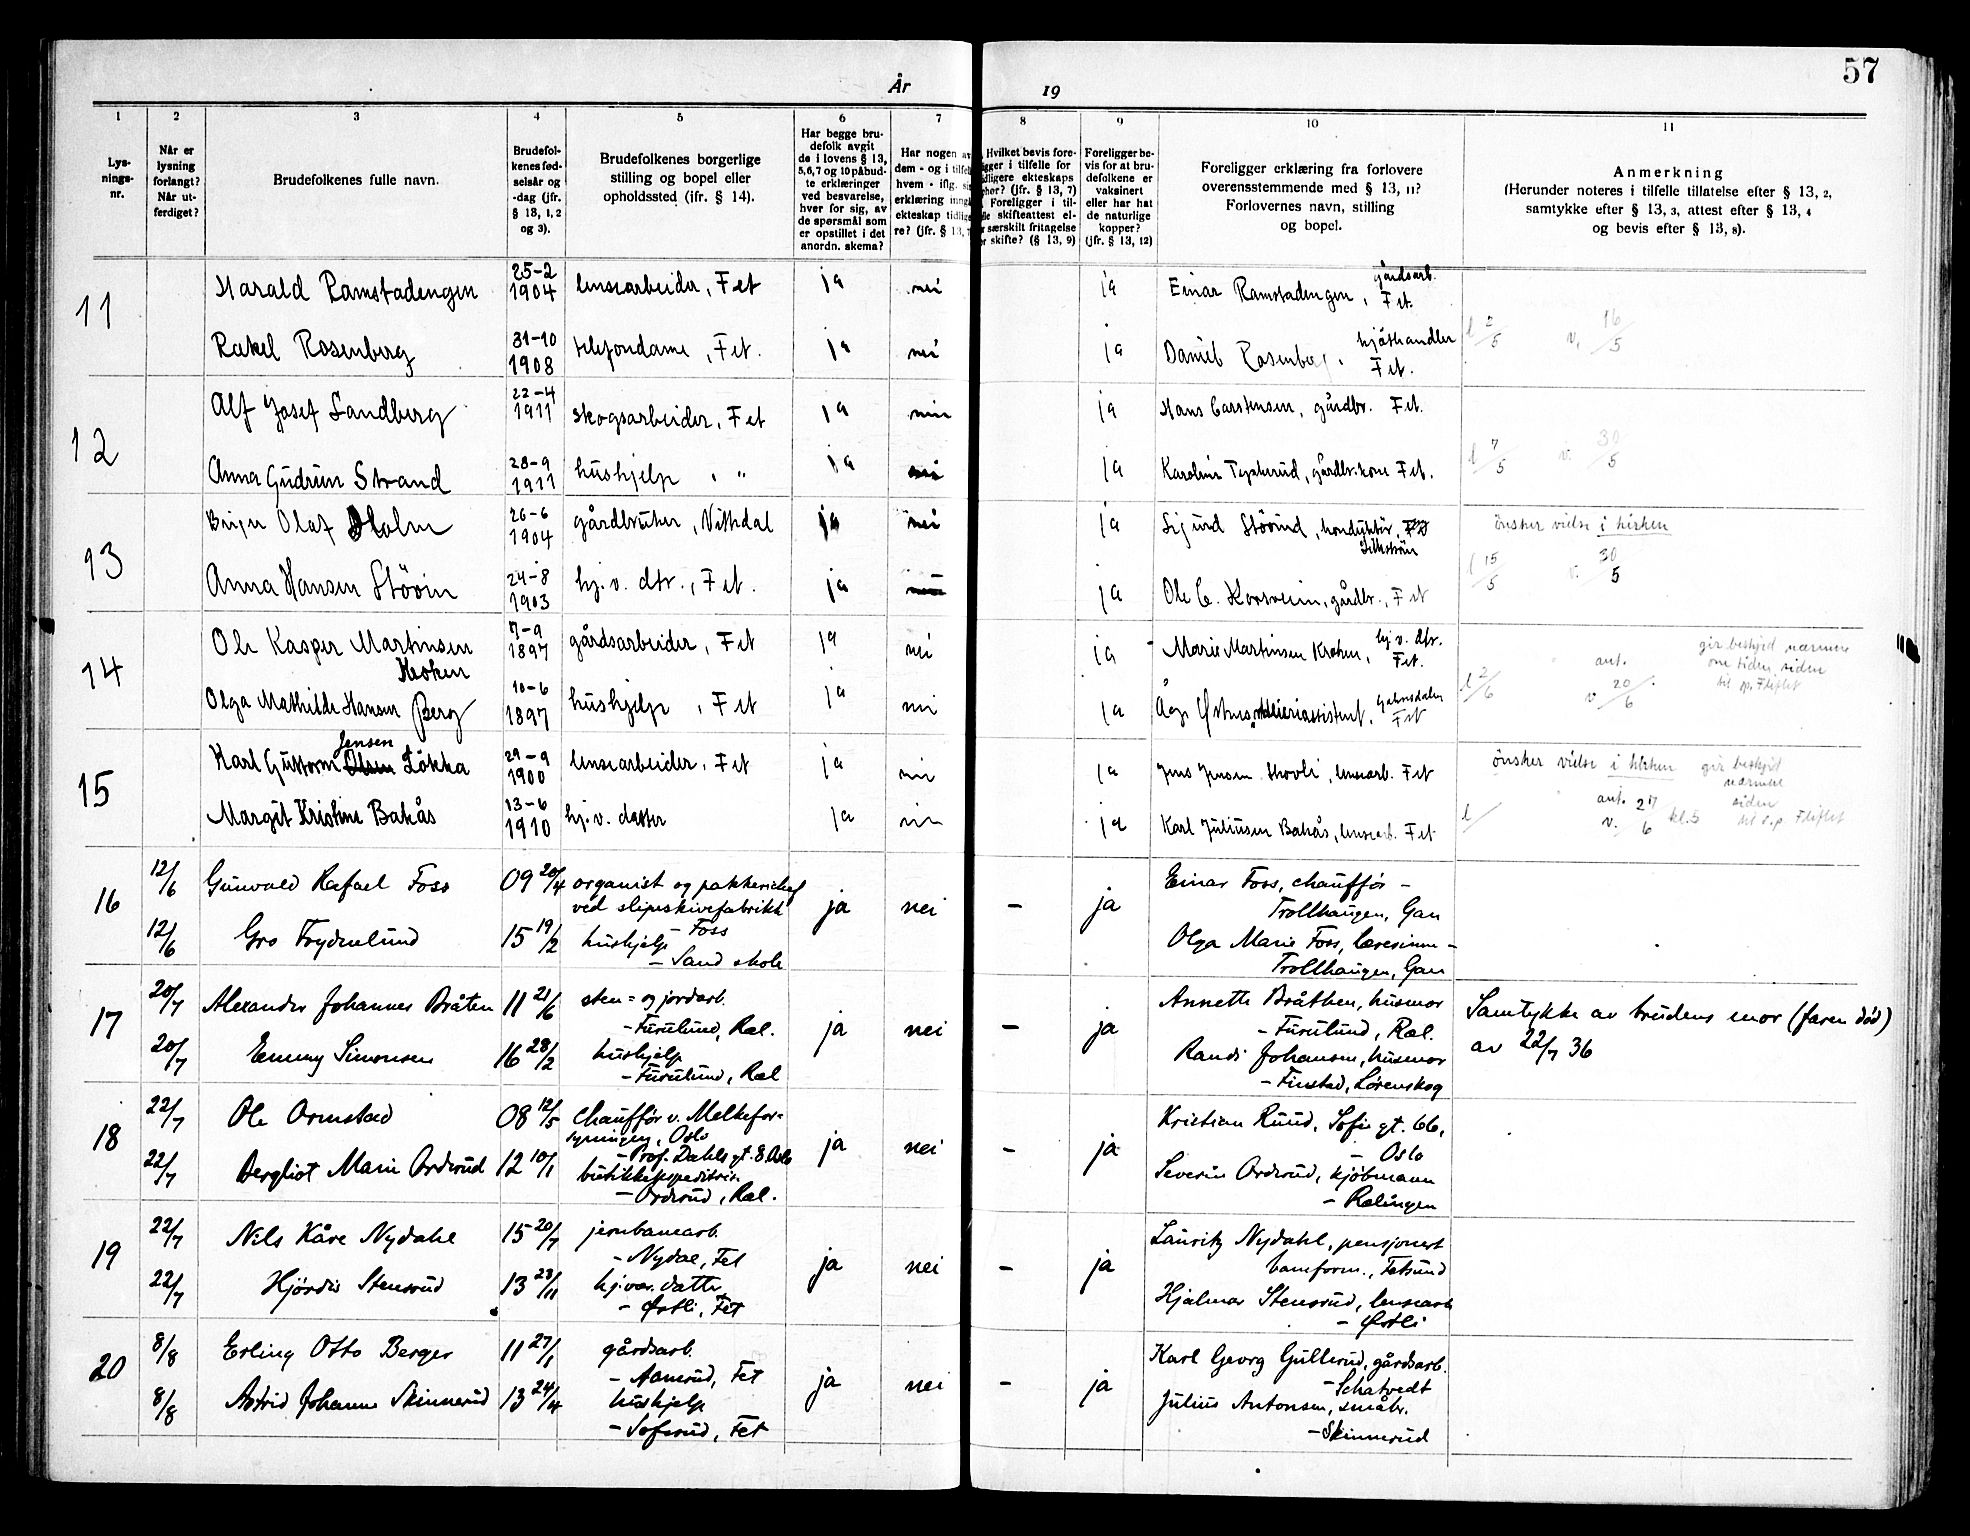 57
År 19
1 2 3 4 5 6 7 8 9 10 11
Lys-
nings-
nr.
Når er
lysning
forlangt?
Når ut-
ferdiget?
Brudefolkenes fulle navn.
Brudefol-
kenes fød-
selsår og
-dag (jfr.
§ 13, 1, 2
og 3).
Brudefolkenes borgerlige
stilling og bopel eller
opholdssted (ifr. § 14).
Har begge bru-
defolk avgit
de i lovens § 13,
5, 6, 7 og 10 påbud-
te erklæringer
ved besvarelse,
hver for sig, av
de spørsmål som
er opstillet i det
anordn. skema?
Har nogen av
dem - og i tilfel
hvem - iflg. si
erklæring inng
ekteskap tidlige
re? (jfr. § 13, 7
Hvilket bevis fore-
igger i tilfelle for
idligere ekteskaps
pher? (jfr. § 13, 7)
Foreligger i til-
elle skifteattest el-
r særskilt fritagelse
or skifte? (§ 13, 9)
Foreligger be-
vis for at bru-
defolkene er
vaksinert
eller har hat
de naturlige
kopper?
(jfr. § 13, 12)
Foreligger erklæring fra forlovere
overensstemmende med § 13, 11?
Forlovernes navn, stilling
og bopel.
Anmerkning
(Herunder noteres i tilfelle tillatelse efter § 13, 2,
samtykke efter § 13, 3, attest efter § 13, 4
og bevis efter § 13, 8).
11 Harald Ramstadengen 25-2 1904 lensearbeider, Fet ja nei ja Einar Ramstadengen, gårdsarb. Fet.
Rakel Rosenberg 31-10 1908 telefondame, Fet. ja nei ja Daniel Rosenberg, kjøthandler Fet. l 2/5 v. 16/5
12 Alf Josef Sandberg 22-4 1911 skogsarbeider, Fet ja nei ja Hans Carstensen, gårdbr. Fet.
Anna Gudrun Strand 28-9 1911 hushjelp, " ja nei ja Karoline, gårdbr.kone Fet. l 7/5 v. 30/5
13 Birger Olaf Holm 26-6 1904 gårdbruker, Vittedal ja nei ja Sigurd Støvind, konduktør, ønsker vielse i kirken
Anna Hansen Støvin 24-8 1903 hj. v. dtr., Fet. ja ja Ole C. Korsveien, gårdbr., Fet l 15/5 v. 30/5
14 Ole Kasper Martinsen Kroken 7-9 1897 gårdsarbeider, Fet ja nei ja Marie Martinsen Kroken, hj. v. dtr. Fet. gir beskjed nærmere om tiden siden
Olga Mathilde Hansen Berg 10-6 1897 hushjelp, Fet ja nei ja Fet l 2/6 ant. v 20/6
15 Karl Guttorm Olsen Jensen Løkka 29-9 1900 lensearbeider, Fet ja nei ja Jens Jensen Hovli, lensearb. Fet ønsker vielse i kirken gir beskjed nærmere siden
Margit Kristine Bakås 13-6 1910 hj. v. datter ja nei ja Karl Juliusen Bakås, lensearb. Fet l/ ant. v. 27/6 kl. 5
16 12/6 Gunvald Rafael Foss 09 20/4 organist og pakkerichef
ved slipeskivefabrikk
– Foss ja nei – ja Einar Foss, chauffør –
Trollhaugen, Gan
12/6 Gro Frydenlund 15 19/2 hushjelp
– Sand skole Olga Marie Foss, lærerinne –
Trollhaugen, Gan
17 20/7 Alexander Johannes Bråten 11 21/6 sten= og jordarb.
– Furulund, Ræl. ja nei – ja Annette Bråthen, husmor
– Furulund, Ræl. Samtykke av brudens mor (faren død)
av 22/7 36
20/7 Emmy Simonsen 16 28/2 hushjelp
– Furulund, Ræl Randi Johansen, husmor
– Finstad, Lørenskog
18 22/7 Ole Ormstad 08 12/5 Chauffør v. Melkefor-
syningen, Oslo
– Prof. Dahls gt. 8 Oslo ja nei – ja Kristian Ruud, Sofie gt. 66,
– Oslo
22/7 Bergliot Marie Ordrud 12 10/1 butikkekspeditrise
– Ordrud, Ræl. Severin Ordrud, kjøbmann
– Rælingen
19 22/7 Nils Kåre Nydahl 15 20/7 jernbanearb.
– Nydal, Fet ja nei – ja Lauritz Nydahl, pensjonert
baneform., Fetsund
22/7 Hjørdis Stensrud 13 28/11 hj.vær. datter
– Østli, Fet Hjalmar Stensrud, lensearb
– Østli
20 8/8 Erling Otto Berger 11 27/1 gårdsarb.
– Aamrud, Fet ja nei – ja Karl Georg Gullerud, gårdsarb.
– Schatvedt
8/8 Astrid Johanne Skinnerud 13 24/4 hushjelp
– Soferud, Fet Julius Antonsen, småbr.
– Skinnerud